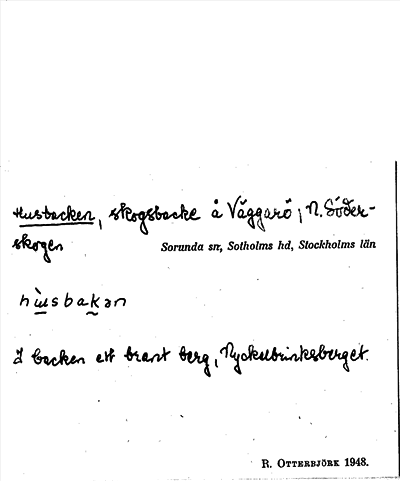 Husbacken, skogsbacke å Väggarö, N. Söder-
skogen
Sorunda sn, Sotholms hd, Stockholms län
hùsbakən
I backen ett brant berg, Nyckelbrinksberget.
R. OTTERBJÖRK 1948.